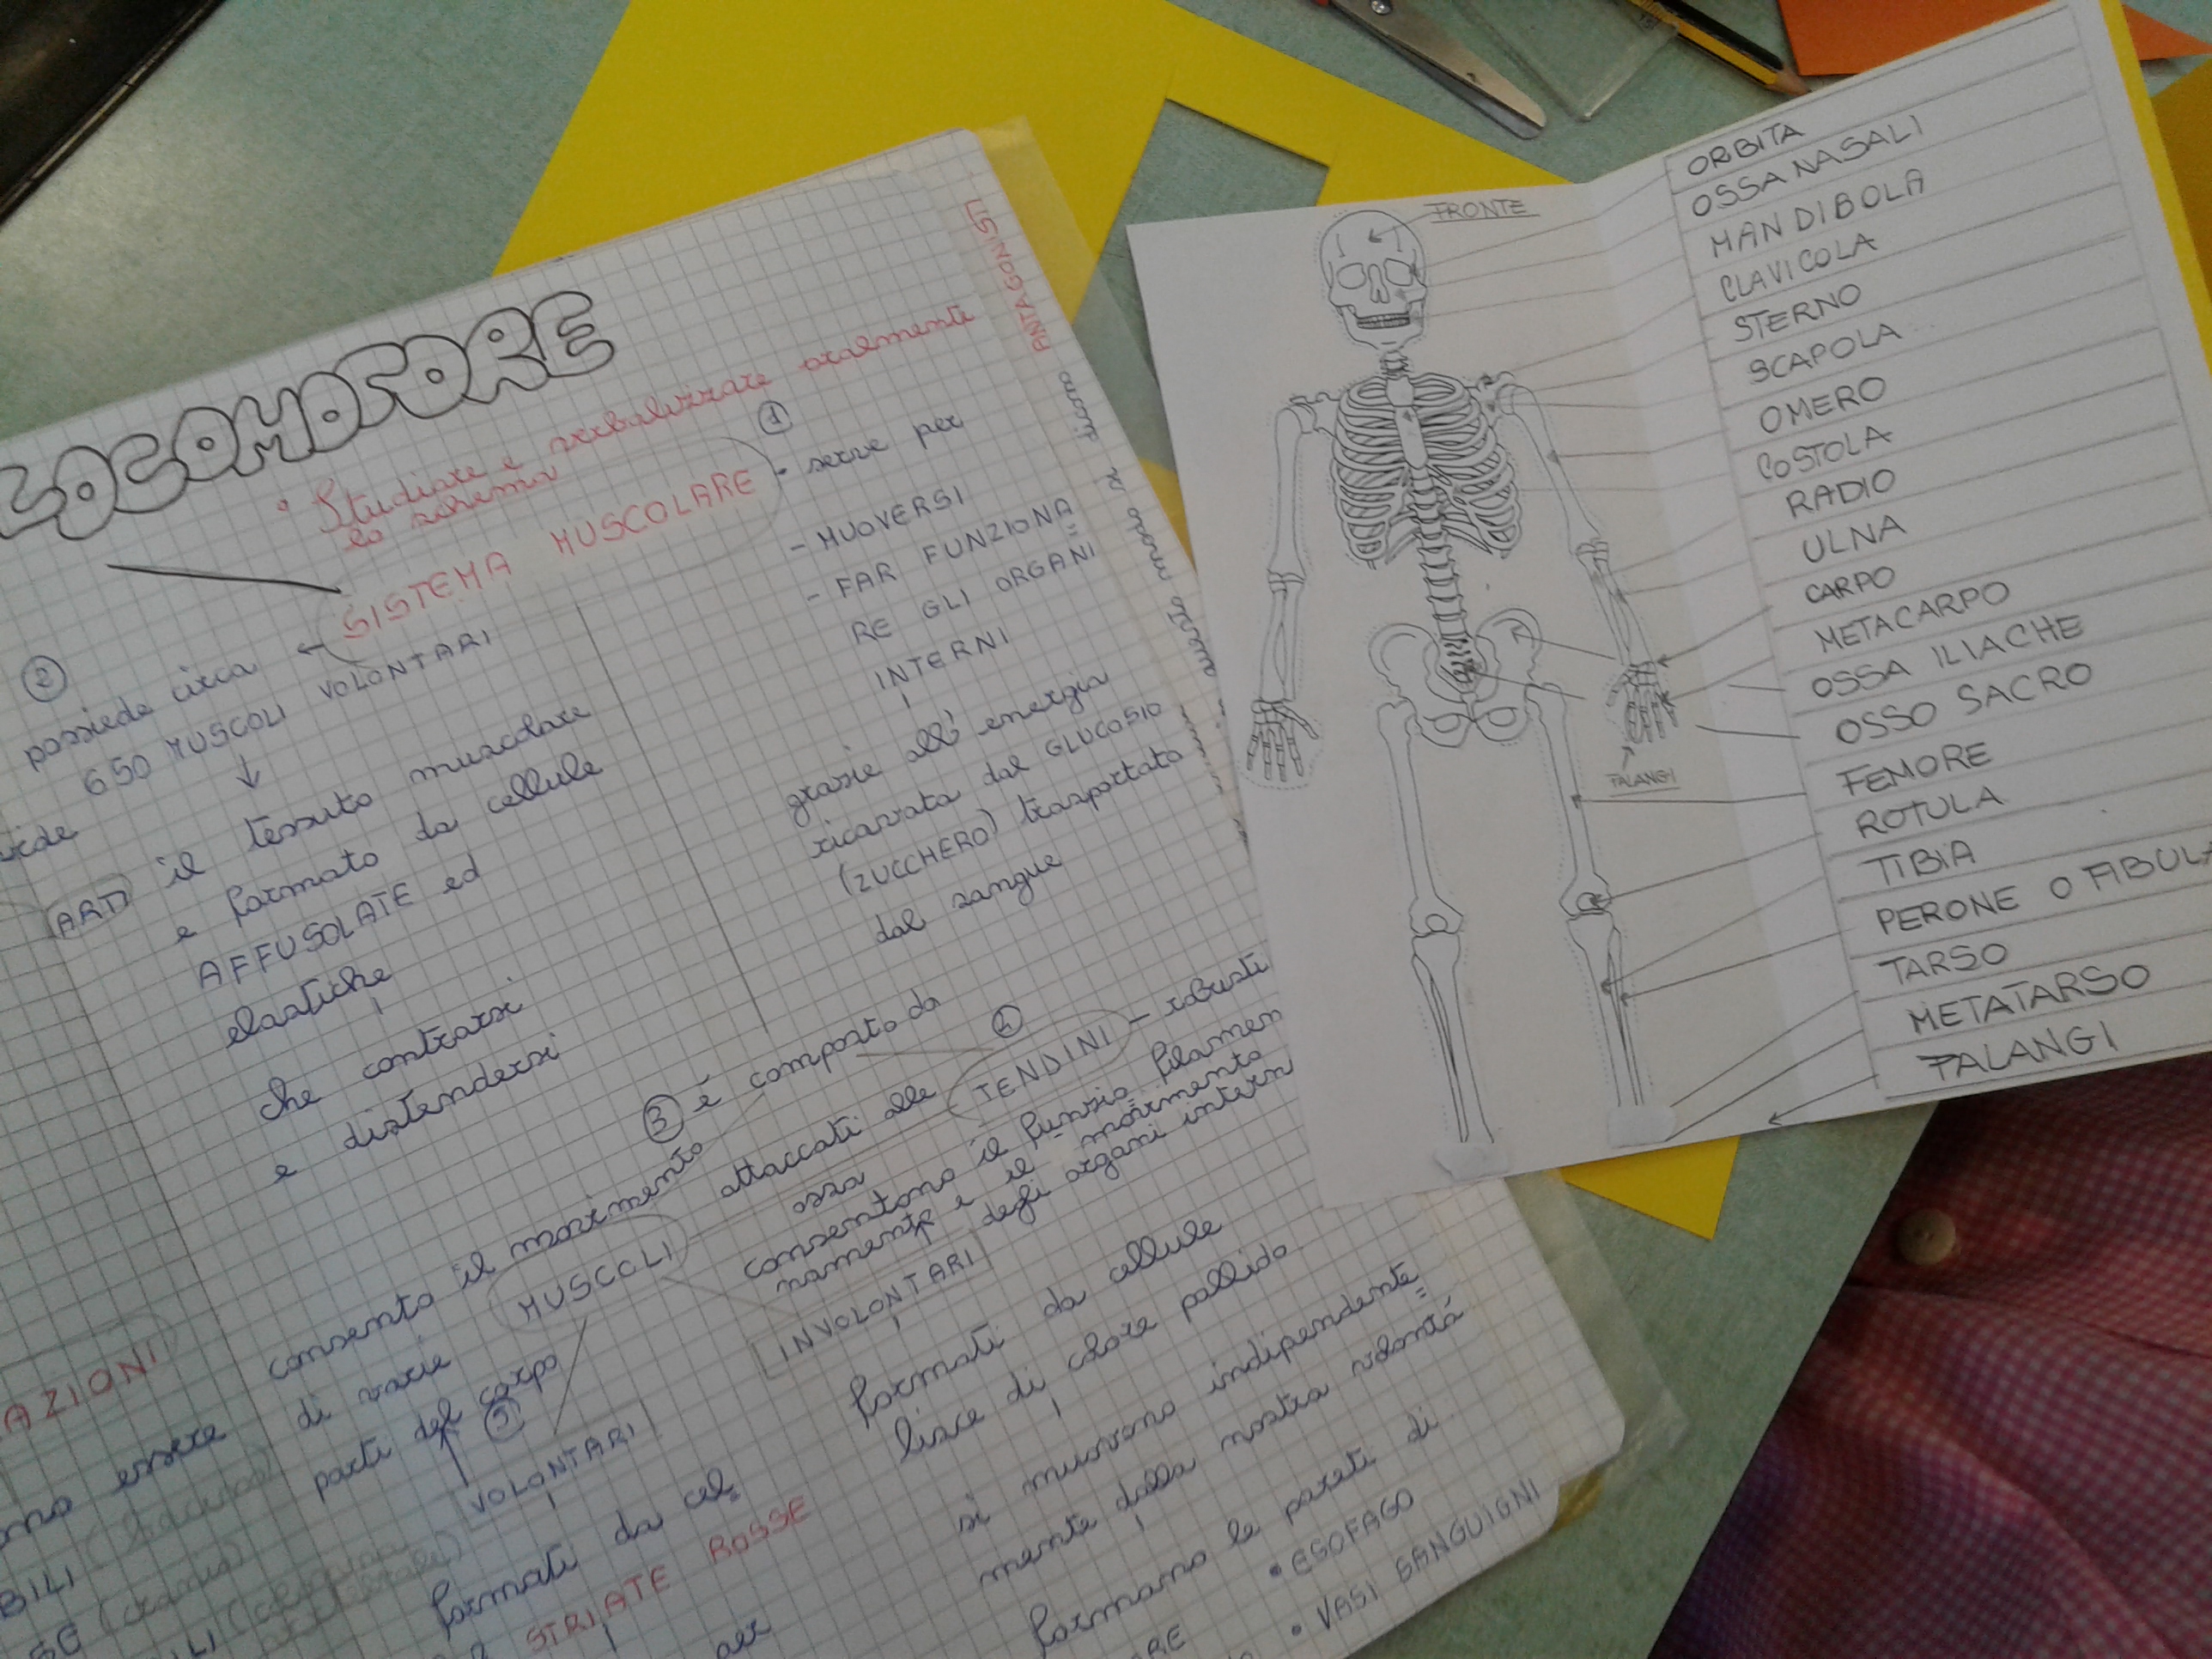 LOCOMOTORE
• Studiare e verbalizzare oralmente
lo schema
SISTEMA MUSCOLARE
①
• serve per
- MUOVERSI
- FAR FUNZIONA=
RE GLI ORGANI
INTERNI
grazie all'energia
ricavata dal GLUCOSIO
(ZUCCHERO) trasportato
dal sangue
②
possiede circa
650 MUSCOLI VOLONTARI
il tessuto muscolare
e formato da cellule
AFFUSOLATE ed
elastiche
che contrarsi
e distendersi
ARTI
③ é composto da
MUSCOLI
attaccati alle
ossa
④
TENDINI - robusti
filamen
consento il movimento
di varie
parti del corpo
⑤
VOLONTARI
formati da cel=
STRIATE ROSSE
per
consentono il funzio=
namento e il movimento
degli organi intern
INVOLONTARI
formati da cellule
lisce di colore pallido
si muovono indipendente=
mente dalla nostra volontà
formano le pareti di
• ESOFAGO
• VASI SANGUIGNI
AZIONI
essere
BILI
ANTAGONISTI
FRONTE
ORBITA
OSSA NASALI
MANDIBOLA
CLAVICOLA
STERNO
SCAPOLA
OMERO
COSTOLA
RADIO
ULNA
CARPO
METACARPO
OSSA ILIACHE
OSSO SACRO
FEMORE
ROTULA
TIBIA
PERONE O FIBULA
TARSO
METATARSO
FALANGI
FALANGI